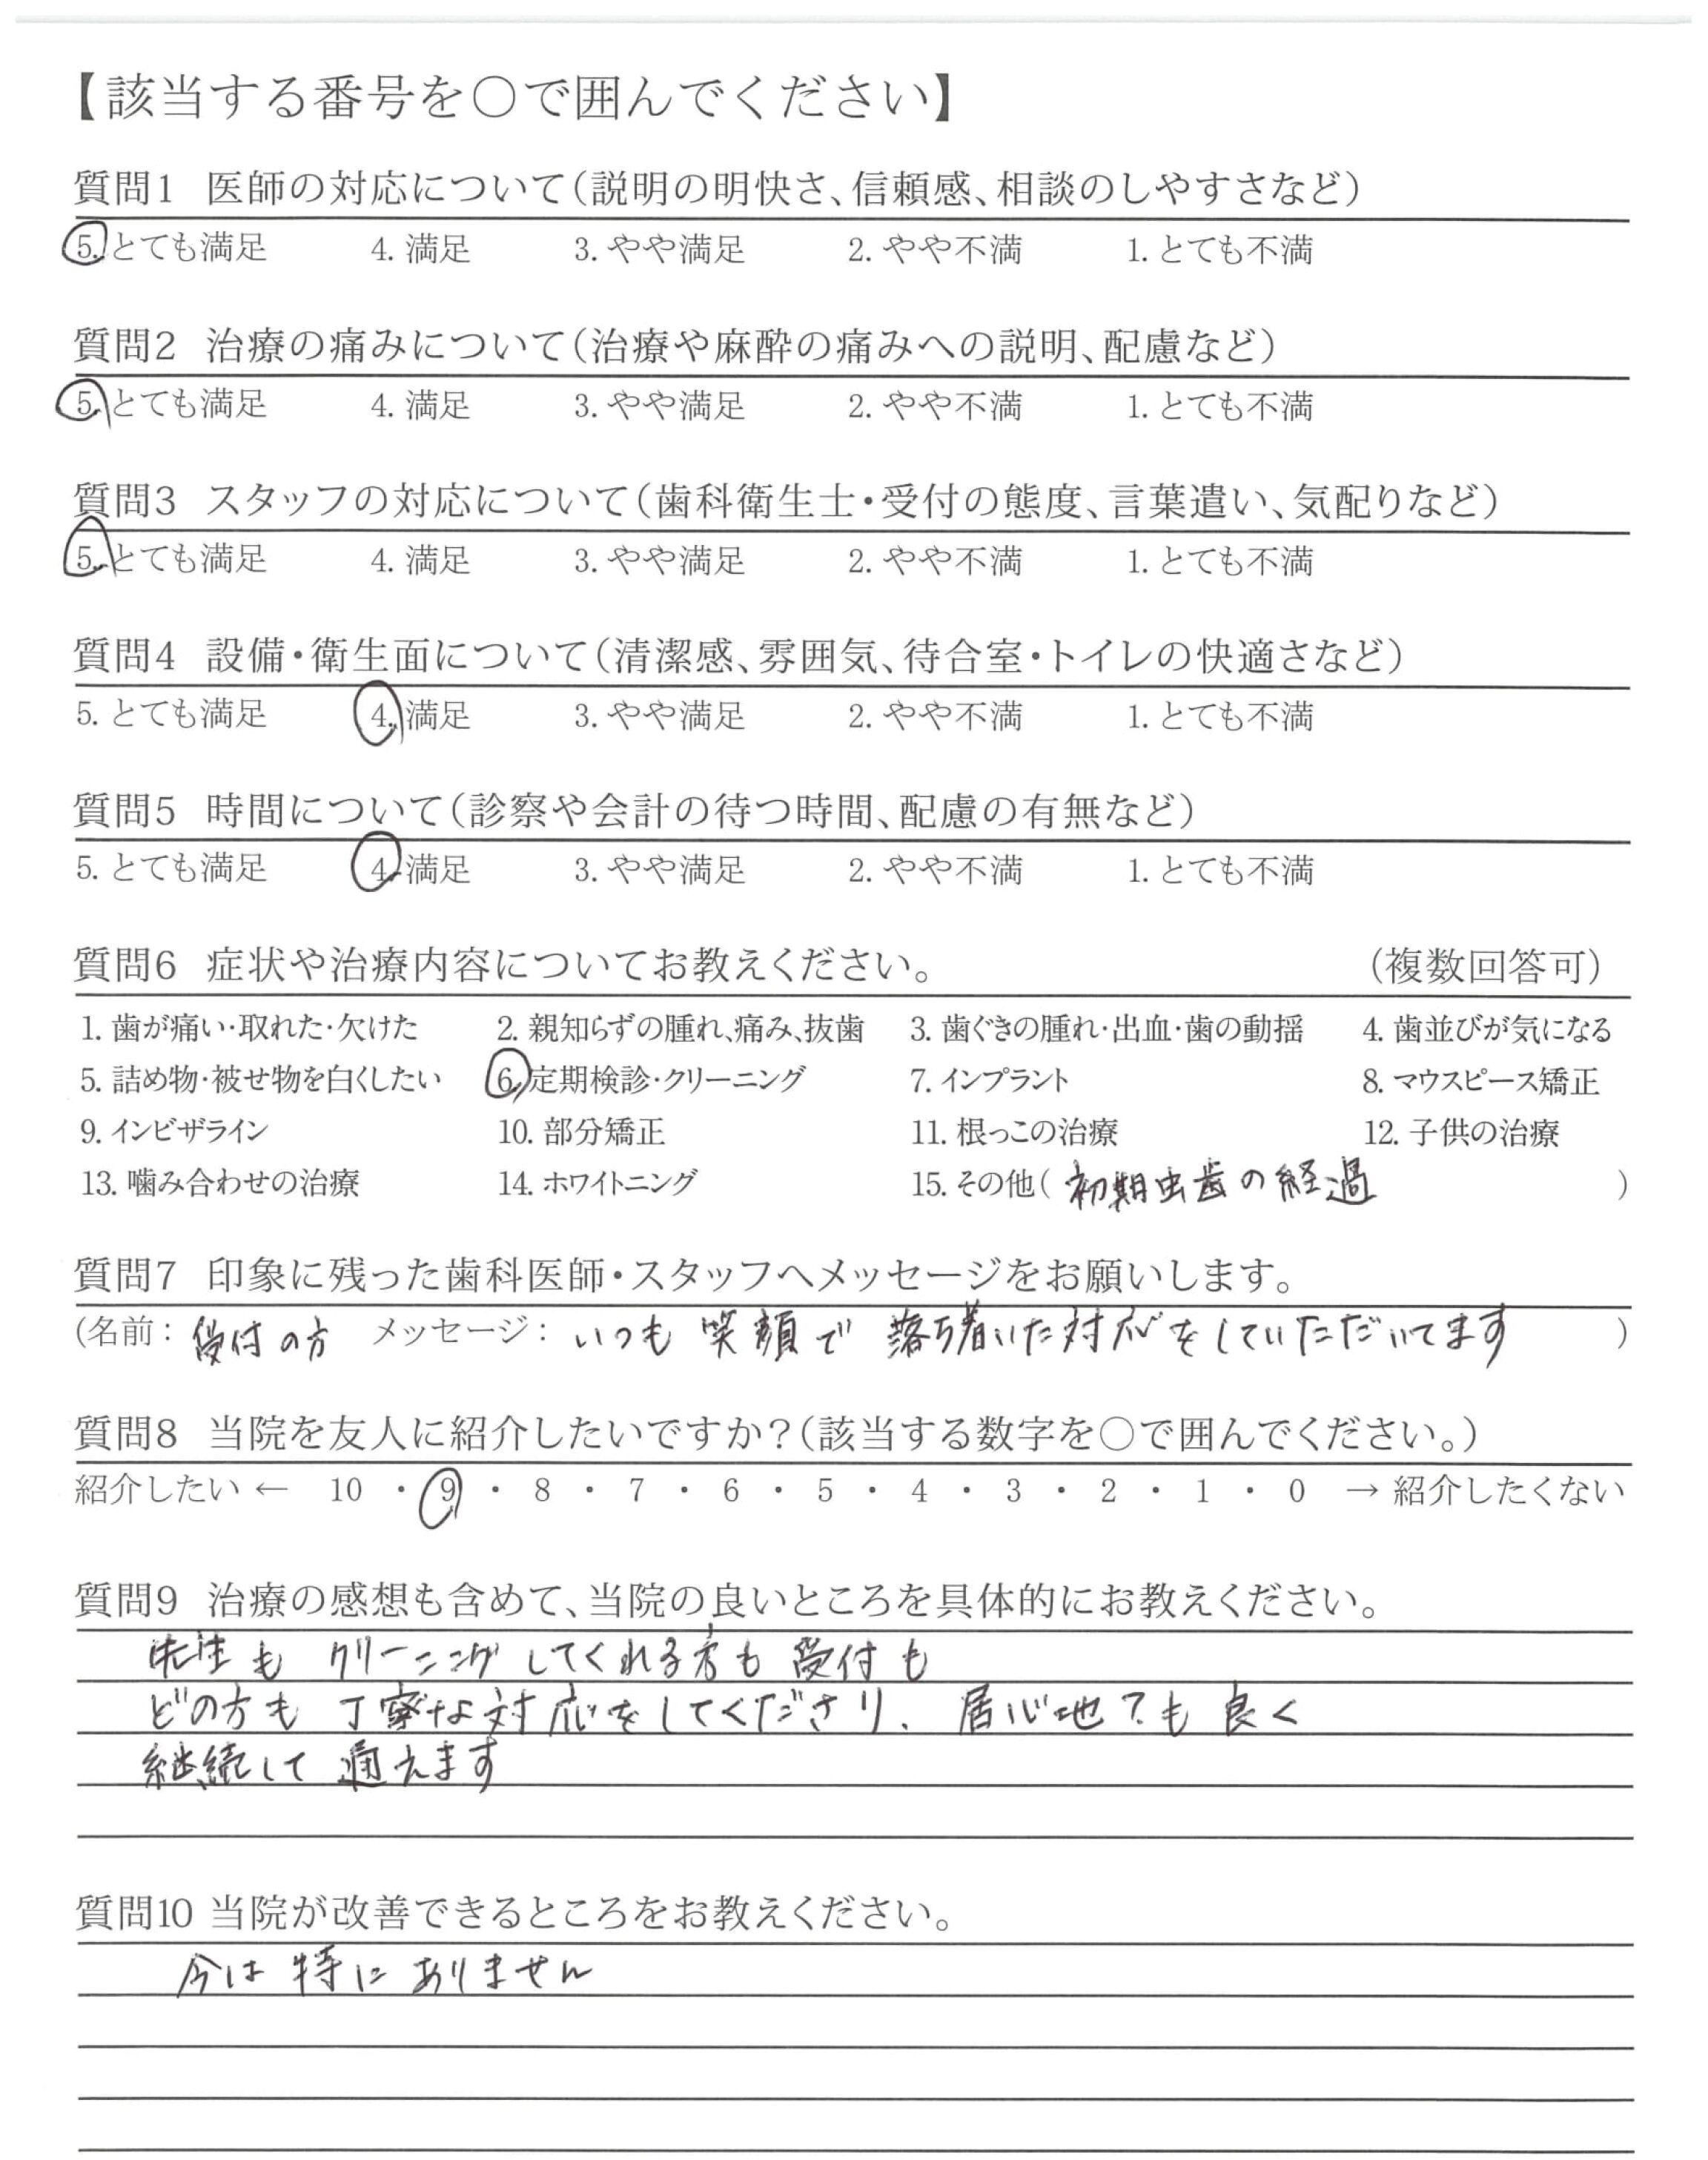 【該当する番号を〇で囲んでください】
質問1 医師の対応について(説明の明快さ、信頼感、相談のしやすさなど)
5. とても満足 4. 満足 3. やや満足 2. やや不満 1. とても不満
質問2 治療の痛みについて(治療や麻酔の痛みへの説明、配慮など)
5. とても満足 4. 満足 3. やや満足 2. やや不満 1. とても不満
質問3 スタッフの対応について(歯科衛生士・受付の態度、言葉遣い、気配りなど)
5. とても満足 4. 満足 3. やや満足 2. やや不満 1. とても不満
質問4 設備・衛生面について(清潔感、雰囲気、待合室・トイレの快適さなど)
5. とても満足 4. 満足 3. やや満足 2. やや不満 1. とても不満
質問5 時間について(診察や会計の待つ時間、配慮の有無など)
5. とても満足 4. 満足 3. やや満足 2. やや不満 1. とても不満
質問6 症状や治療内容についてお教えください。 (複数回答可)
1. 歯が痛い・取れた・欠けた 2. 親知らずの腫れ、痛み、抜歯 3. 歯ぐきの腫れ・出血・歯の動揺 4. 歯並びが気になる
5. 詰め物・被せ物を白くしたい 6. 定期検診・クリーニング 7. インプラント 8. マウスピース矯正
9. インビザライン 10. 部分矯正 11. 根っこの治療 12. 子供の治療
13. 噛み合わせの治療 14. ホワイトニング 15. その他( 初期虫歯の経過 )
質問7 印象に残った歯科医師・スタッフへメッセージをお願いします。
(名前: 受付の方 メッセージ: いつも 笑顔で 落ち着いた対応をしていただいてます )
質問8 当院を友人に紹介したいですか?(該当する数字を〇で囲んでください。)
紹介したい ← 10 ・ 9 ・ 8 ・ 7 ・ 6 ・ 5 ・ 4 ・ 3 ・ 2 ・ 1 ・ 0 → 紹介したくない
質問9 治療の感想も含めて、当院の良いところを具体的にお教えください。
先生も クリーニングしてくれる方も 受付も
どの方も 丁寧な対応をしてくださり、居心地ても良く
継続して 通えます
質問10 当院が改善できるところをお教えください。
今は 特に ありません